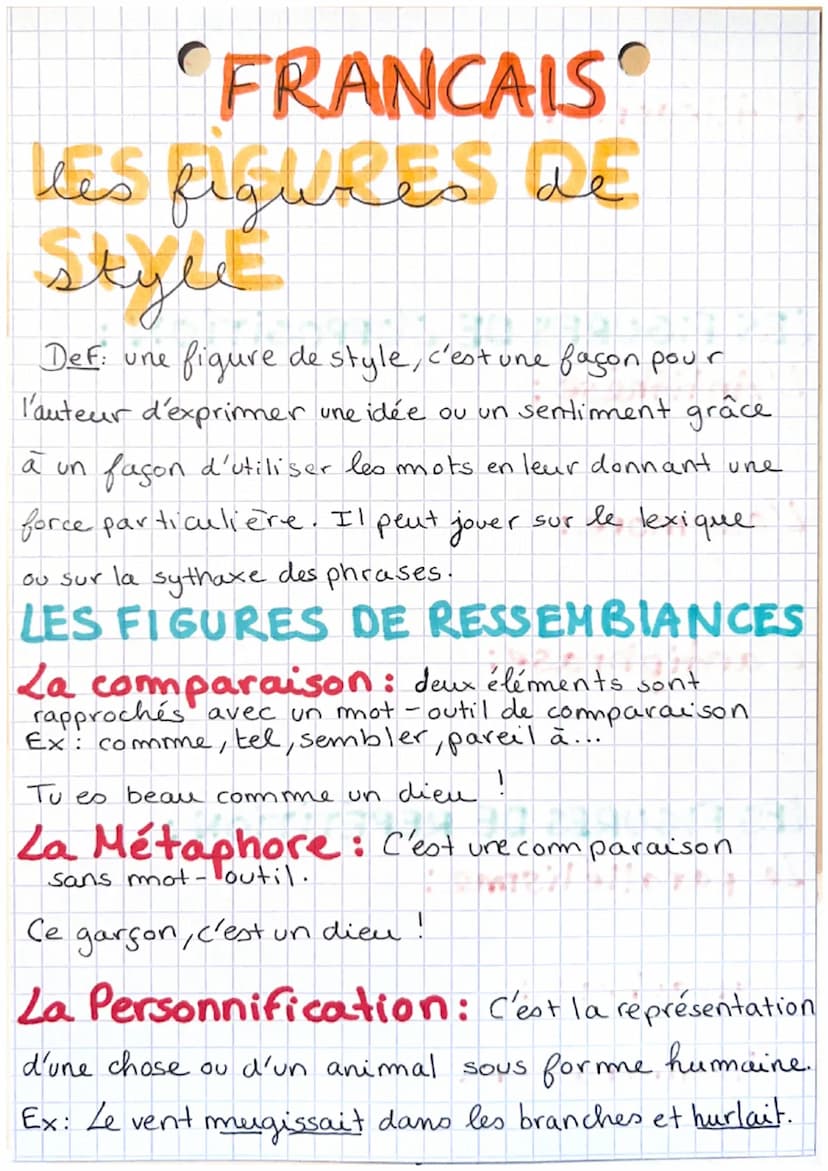 FRANCAIS
LES FIGURES DE
les figures de
STYLE
style
Def: une figure de style, c'est une façon pour
l'auteur d'exprimer une idée ou un sentiment grâce
à un façon d'utiliser les mots en leur donnant une
force particulière. Il peut jouer sur le lexique
ou sur la sythaxe des phrases.
LES FIGURES DE RESSEMBLANCES
La comparaison : deux éléments sont
rapprochés avec un mot-outil de comparaison
Ex : comme, tel, sembler, pareil à...
Tu es beau comme un dieu !
La Métaphore : C'est une comparaison
sans mot-outil.
Ce garçon, c'est un dieu !
La Personnification : C'est la représentation
d'une chose ou d'un animal sous forme humaine.
Ex : Le vent mugissait dans les branches et hurlait.